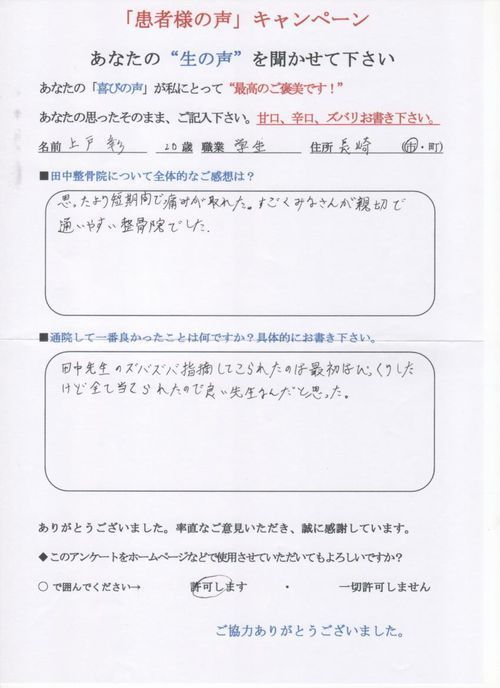 「患者様の声」キャンペーン
あなたの“生の声”を聞かせて下さい
あなたの「喜びの声」が私にとって“最高のご褒美です！”
あなたの思ったそのまま、ご記入下さい。甘口、辛口、ズバリお書き下さい。
名前 上戸 彩 20歳 職業 学生 住所 長崎 市・町）
■田中整骨院について全体的なご感想は？
思ったより短期間で痛みが取れた。すごくみなさんが親切で
通いやすい整骨院でした。
■通院して一番良かったことは何ですか？具体的にお書き下さい。
田中先生のズバズバ指摘してこられたのは最初はびっくりした
けど全て当てられたので良い先生なんだと思った。
ありがとうございました。率直なご意見いただき、誠に感謝しています。
◆このアンケートをホームページなどで使用させていただいてもよろしいですか？
○で囲んでください→ 許可します ・ 一切許可しません
ご協力ありがとうございました。